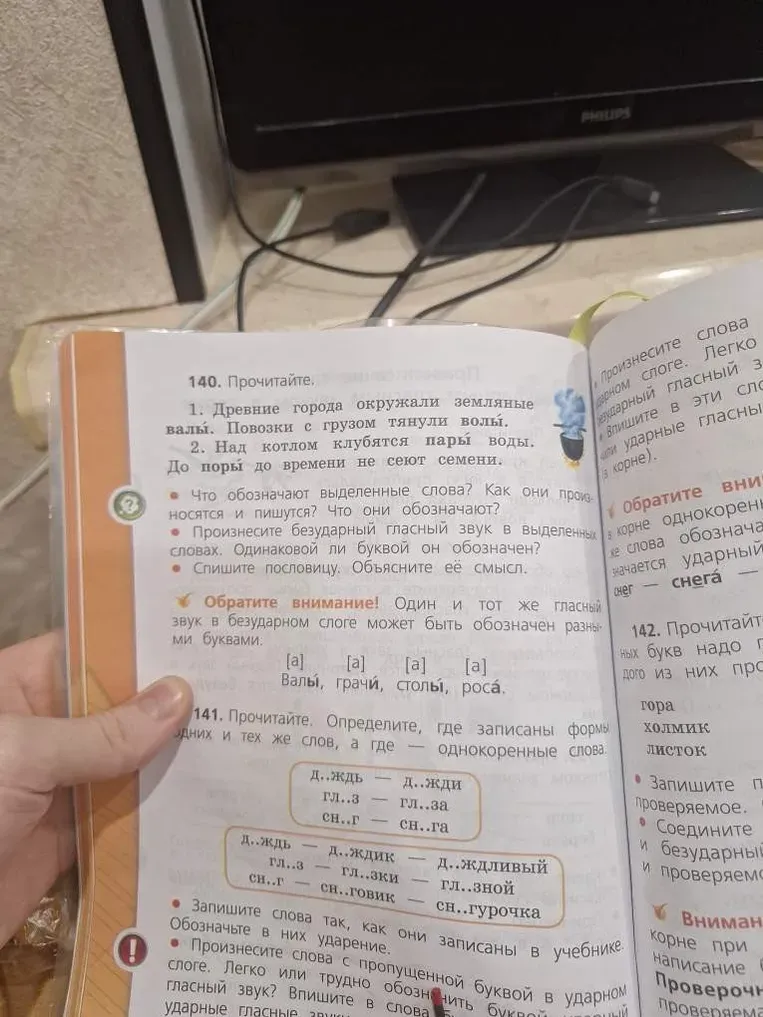 PHILIPS
140. Прочитайте.
1. Древние города окружали земляные
валы́. Повозки с грузом тянули волы́.
2. Над котлом клубятся пары́ воды.
До поры́ до времени не сеют семени.
• Что обозначают выделенные слова? Как они произ-
носятся и пишутся? Что они обозначают?
• Произнесите безударный гласный звук в выделенных
словах. Одинаковой ли буквой он обозначен?
• Спишите пословицу. Объясните её смысл.
Обратите внимание! Один и тот же гласный
звук в безударном слоге может быть обозначен разны-
ми буквами.
[а] [а] [а] [а]
Валы́, грачи́, столы́, роса́.
141. Прочитайте. Определите, где записаны формы
одних и тех же слов, а где — однокоренные слова.
д..ждь — д..жди
гл..з — гл..за
сн..г — сн..га
д..ждь — д..ждик — д..ждливый
гл..з — гл..зки — гл..зной
сн..г — сн..говик — сн..гурочка
• Запишите слова так, как они записаны в учебнике.
Обозначьте в них ударение.
• Произнесите слова с пропущенной буквой в ударном
слоге. Легко или трудно обозначить буквой ударный
гласный звук? Впишите в слова
ударные гласные
• Произнесите слова
слоге. Легко
гласный
• Впишите в эти
ударные гласные
в корне).
Обратите
корне
же слова
ударный
снег — снега́ —
142. Прочитайте
ных букв надо
из них
гора
холмик
листок
• Запишите
проверяемое.
• Соедините
и безударный
и
корне при
написание